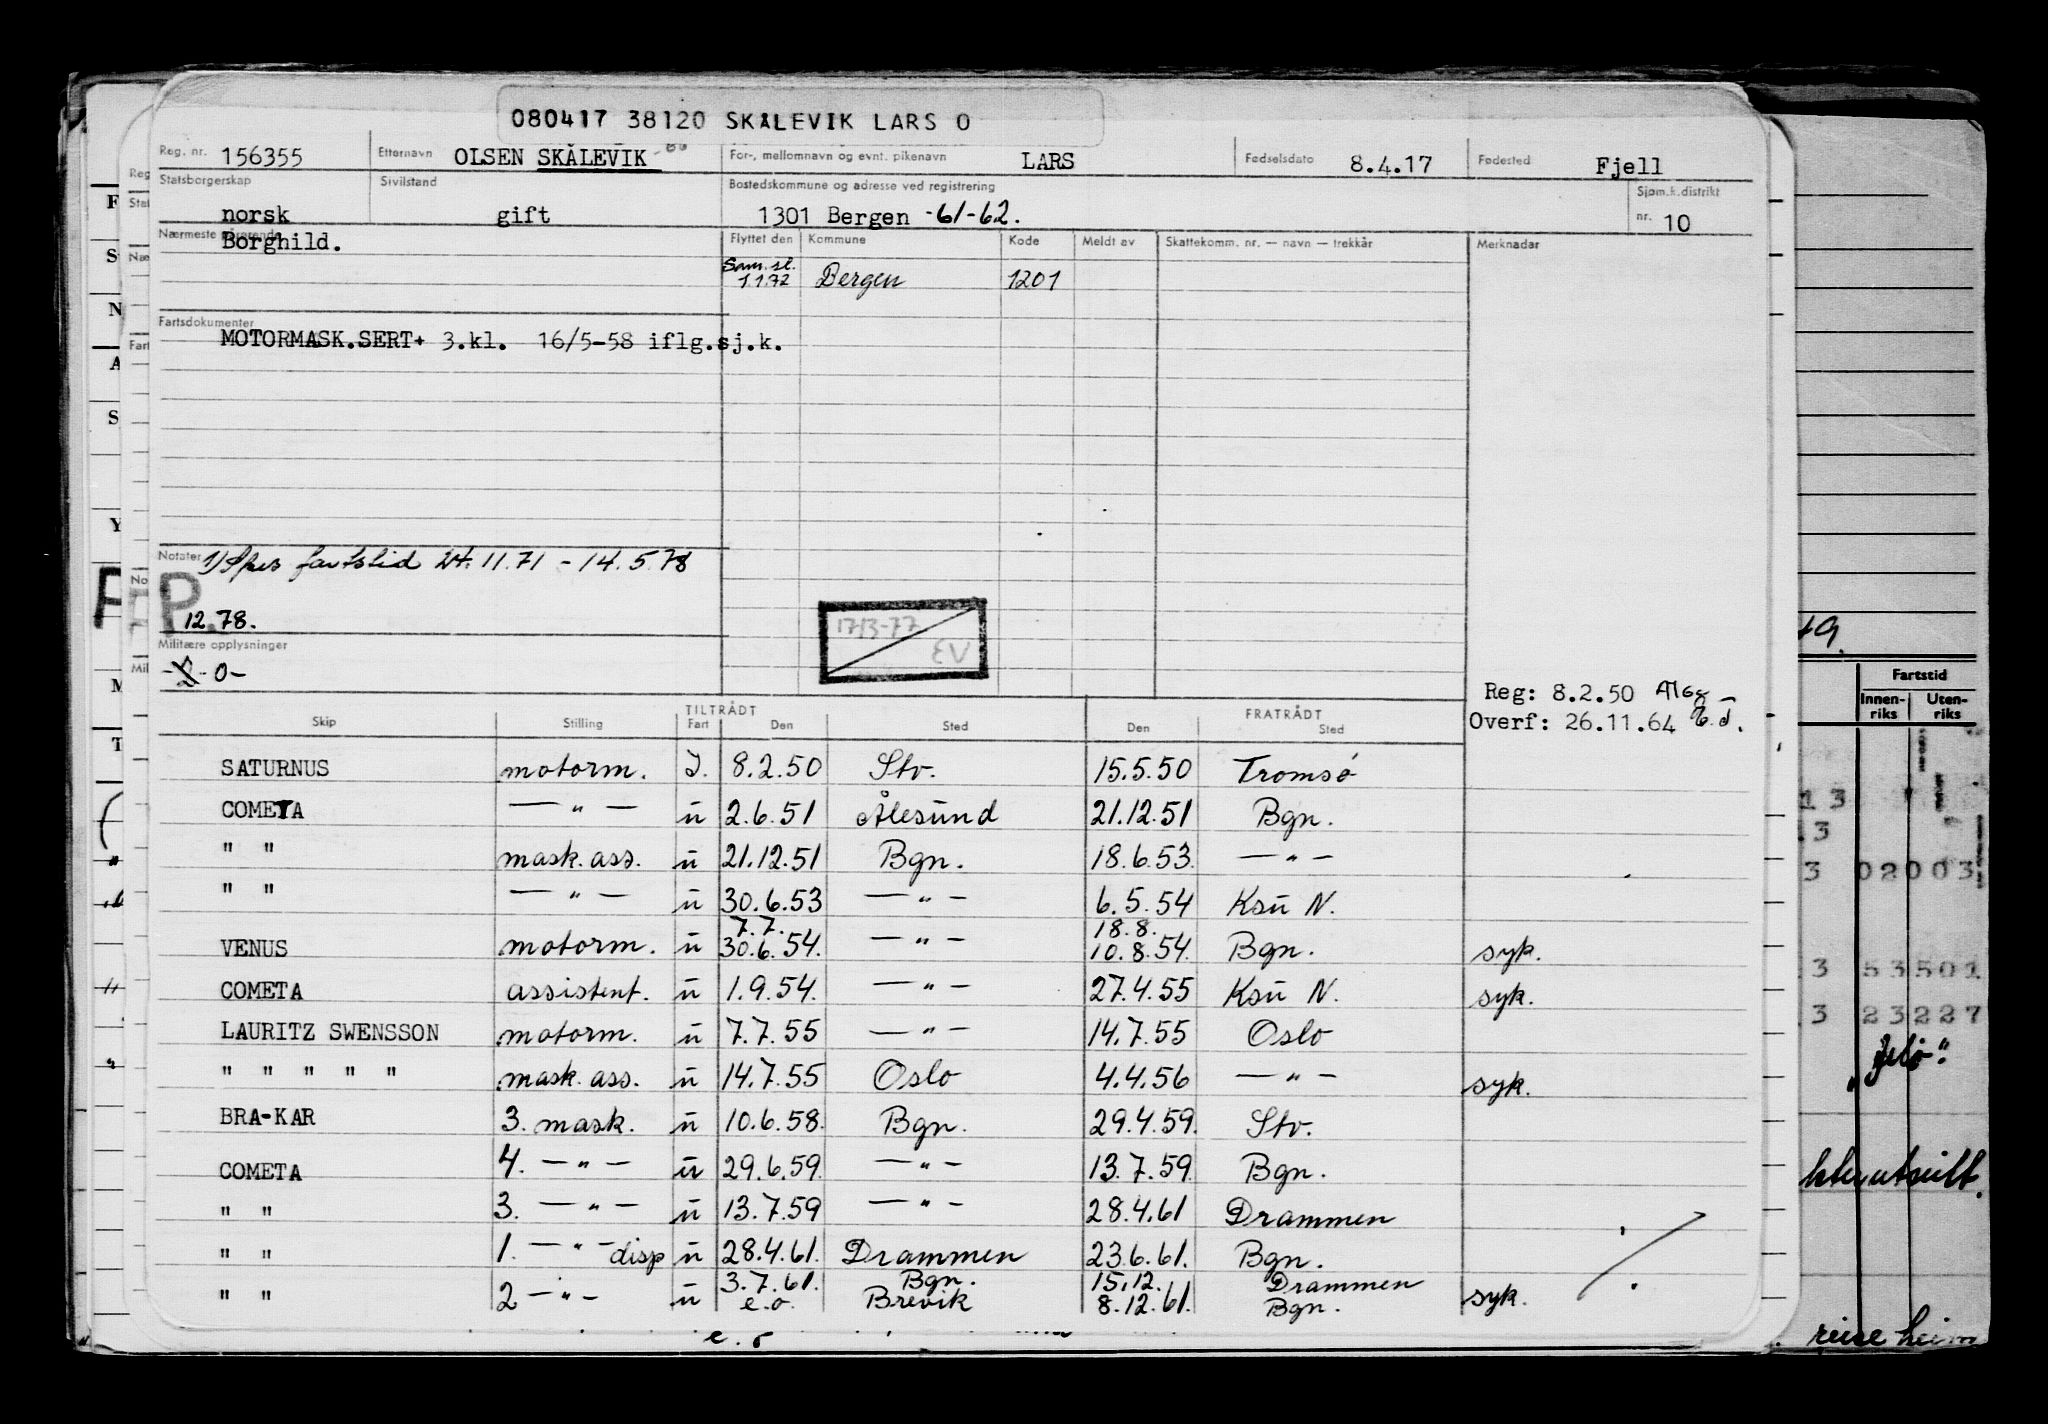 080417 38120 SKÅLEVIK LARS O
Reg. nr. 156355 Etternavn OLSEN SKÅLEVIK For-, mellomnavn og evnt. pikenavn LARS Fødselsdato 8.4.17 Fødested Fjell
Statsborgerskap Sivilstand Bostedskommune og adresse ved registrering Sjøm.k.distrikt
norsk gift 1301 Bergen -61-62. nr. 10
Nærmeste pårørende Flyttet den Kommune Kode Meldt av Skattekomm. nr. — navn — trekkår Merknader
Borghild.
Sam.sl.
1.1.72 Bergen 1201
Fartsdokumenter
MOTORMASK.SERT+ 3.kl. 16/5-58 iflg.sj.k.
Notater 1) Spes fartstid 24.11.71 - 14.5.78
P
12.78.
17/3-77
EV
Militære opplysninger
-0-
Reg: 8.2.50
Overf: 26.11.64
TILTRÅDT FRATRÅDT
Skip Stilling Fart Den Sted Den Sted
SATURNUS motorm. I. 8.2.50 Stv. 15.5.50 Tromsø
COMETA — " — u 2.6.51 Ålesund 21.12.51 Bgn.
" " mask. ass. u 21.12.51 Bgn. 18.6.53. — " —
" " — " — u 30.6.53 — " — 6.5.54 Ksu N.
7.7. 18.8.
VENUS motorm. u 30.6.54. — " — 10.8.54. Bgn. syk.
COMETA assistent. u 1.9.54. — " — 27.4.55 Ksu N. syk.
LAURITZ SWENSSON motorm. u 7.7.55 — " — 14.7.55 Oslo
" " " " " mask. ass. u 14.7.55 Oslo 4.4.56 — " — syk.
BRA-KAR 3. mask. u 10.6.58. Bgn. 29.4.59. Stv.
COMETA 4. — " — u 29.6.59. — " — 13.7.59. Bgn.
" " 3. — " — u 13.7.59 — " — 28.4.61 Drammen
" " 1. — " — disp u 28.4.61. Drammen 23.6.61. Bgn.
3.7.61. Bgn. 15.12. Drammen
" " 2 — " — u e.o. Brevik 8.12.61. Bgn. syk.
Fartstid
Innen-
riks
Uten-
riks
02003
3 53501
3 23227
reise heim